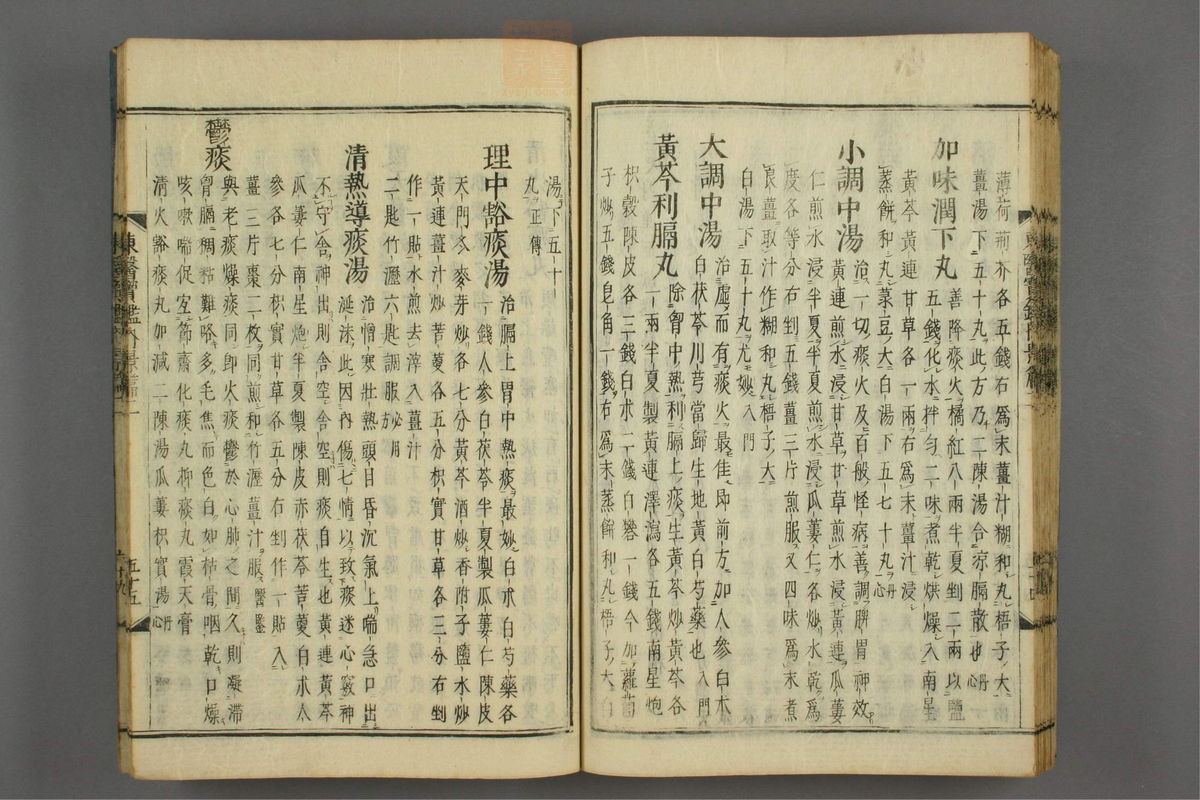 薄荷荊芥各五錢右爲末薑汁糊和丸梧子大
薑湯下五十丸此方乃二陳湯合凉膈散也丹心
加味潤下丸 善降痰火橘紅八兩半夏剉二兩以鹽
五錢化水拌勻二味煮乾烘燥入南星
黃芩黃連甘草各一兩右爲末薑汁浸
蒸餅和丸菉豆大白湯下五七十丸丹心
小調中湯 治一切痰火及百般怪病善調脾胃神效
黃連煎水浸甘草甘草煎水浸黃連瓜蔞
仁煎水浸半夏半夏煎水浸瓜蔞仁各炒水乾爲
度各等分右剉五錢薑三片煎服又四味爲末煮
良薑取汁作糊和丸梧子大
白湯下五十丸尤妙入門
大調中湯 治虛而有痰火最佳即前方加人參白朮
白茯苓川芎當歸生地黃白芍藥也入門
黃芩利膈丸 除胷中熱利膈上痰生黃芩炒黃芩各
一兩半夏製黃連澤瀉各五錢南星炮
枳殼陳皮各三錢白朮二錢白礬一錢今加蘿蔔
子炒五錢皂角一錢右爲末蒸餠和丸梧子大白
湯下五十
丸正傳
理中豁痰湯 治膈上胃中熱痰最妙白朮白芍藥各
一錢人參白茯苓半夏製瓜蔞仁陳皮
天門冬麥芽炒各七分黃芩酒炒香附子鹽水炒
黃連薑汁炒苦蔓各五分枳實甘草各三分右剉
作一貼水煎去滓入薑汁
二匙竹瀝六匙調服必用方
清熱導痰湯 治憎寒壯熱頭目昏沉氣上喘急口出
涎沫此因內傷七情以致痰迷心竅神
不守舍神出則舍空舍空則痰自生也黃連黃芩
瓜蔞仁南星炮半夏製陳皮赤茯苓苦蔓白朮人
參各七分枳實甘草各五分右剉作一貼入
薑三片棗二枚同煎和竹瀝薑汁服醫鑑
鬱痰 與老痰燥痰同即火痰鬱於心肺之間久則凝滯
胷膈稠粘難咯多毛焦而色白如枯骨咽乾口燥
咳嗽喘促宜節齋化痰丸抑痰丸霞天膏
清火豁痰丸加減二陳湯瓜蔞枳實湯丹心